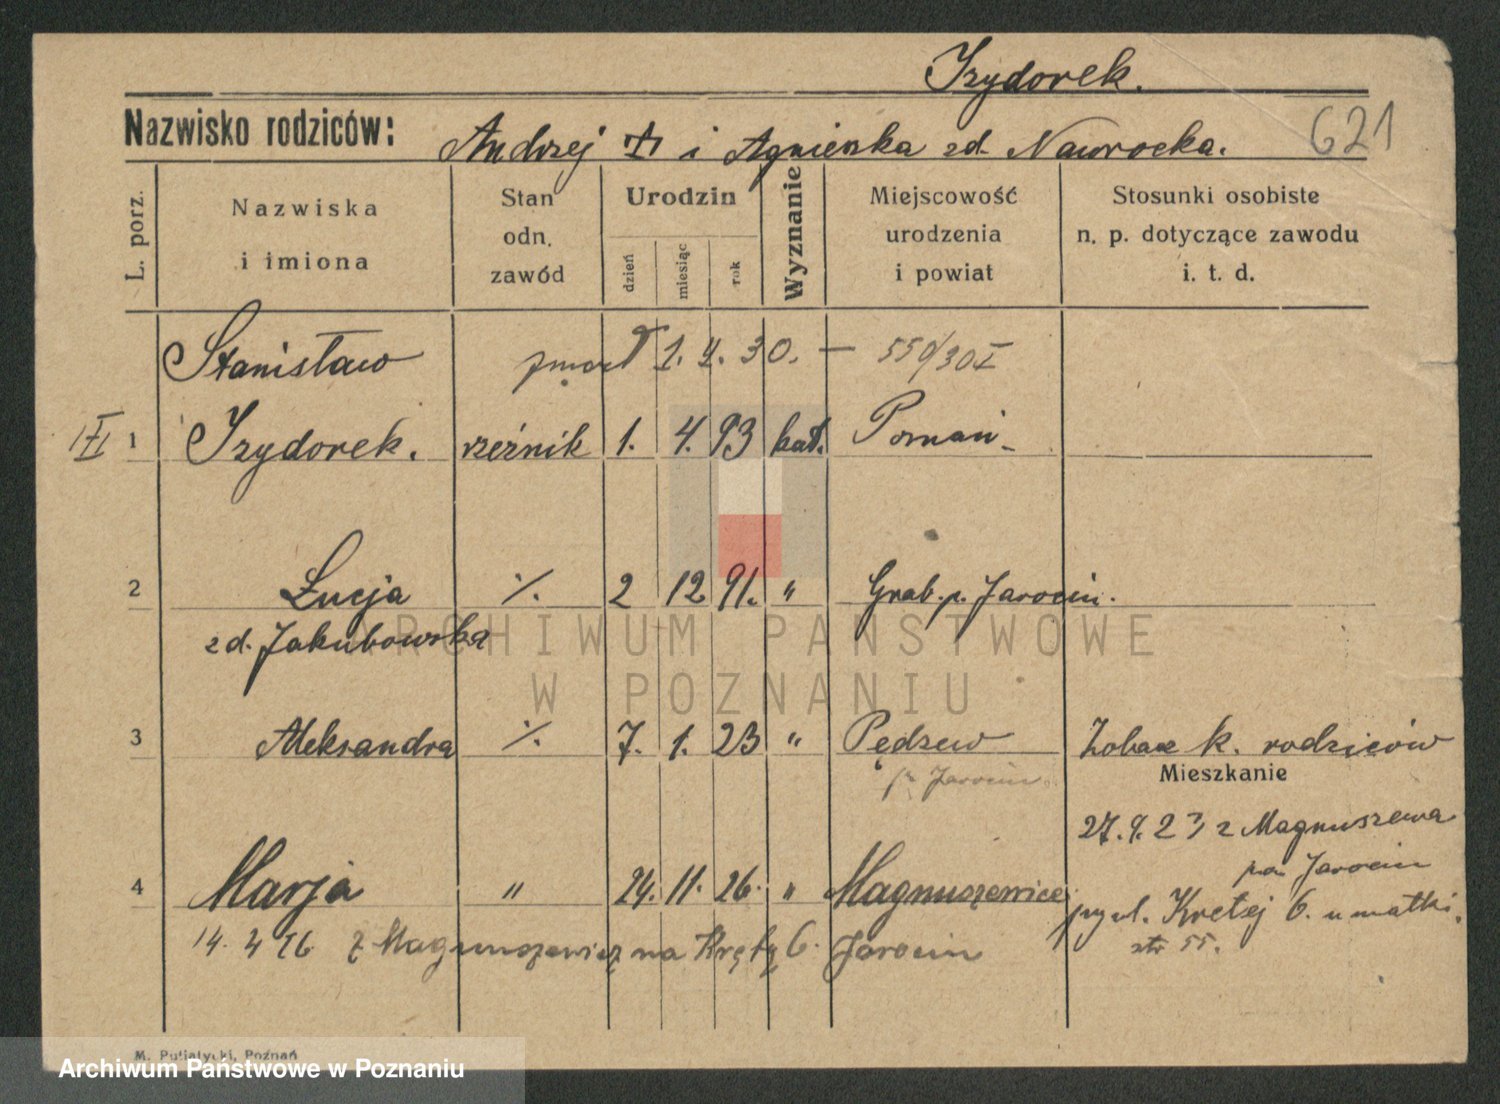 Izydorek.
Nazwisko rodziców: Andrzej i Agnieszka zd. Nawrocka. 621
L. porz.
Nazwiska i imiona
Stan odn. zawód
Urodzin
dzień miesiąc rok
Wyznanie
Miejscowość urodzenia i powiat
Stosunki osobiste n. p. dotyczące zawodu i. t. d.
Stanisław zmarł 1. 4. 30. — 550/30 I
1 Izydorek. rzeźnik 1. 4. 93 kat. Poznań
2 Łucja ·/. 2 12 91. " Grab. p. Jarocin.
zd. Jakubowska
3 Aleksandra ·/. 7. 1. 23 " Pędzew Zobacz k. rodziców
p. Jarocin
Mieszkanie
27. 9. 23 z Magnuszewa
pow. Jarocin
4 Marja " 24. 11. 26. " Magnuszewice
przy ul. Krętej 6. u matki.
str 55.
14. 4 26 z Magnuszewic na Krętą 6. Jarocin
M. Putiatycki, Poznań
ARCHIWUM PAŃSTWOWE
W POZNANIU
Archiwum Państwowe w Poznaniu